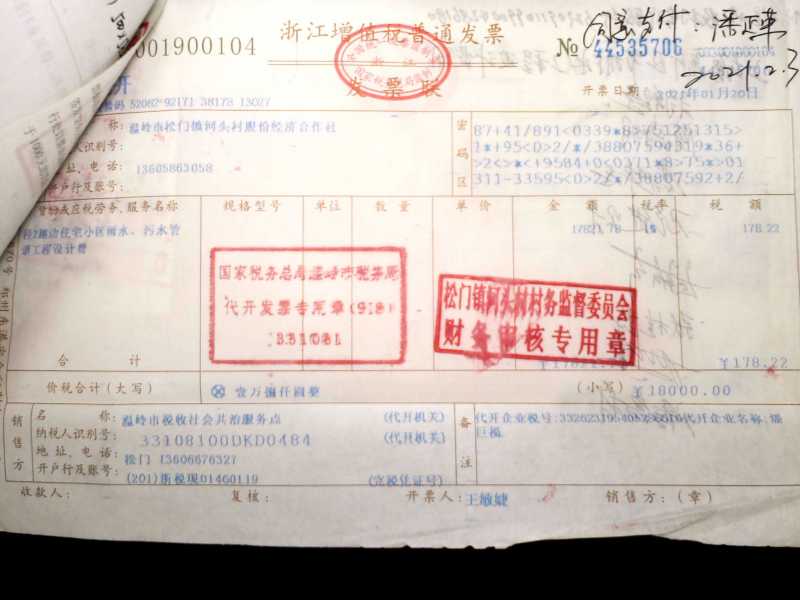 001900104
浙江增值税普通发票
No 44535706
同意支付:
2021.2.3
发票联
开票日期
2021年01月20日
称: 温岭市松门镇河头村股份经济合作社
人识别号:
址、电话: 13605863058
开户行及账号:
密码区
87+41/891<0339*8>751251315>
货物或应税劳务、服务名称
规格型号
单位
数量
单价
金额
税率
税额
住宅小区雨水、污水管
道工程设计费
17821.78
1%
178.22
国家税务总局温岭市税务局
代开发票专用章
松门镇河头村村务监督委员会
财务审核专用章
合计
¥178.22
价税合计(大写)
壹万捌仟圆整
(小写) ¥18000.00
销售方
名称: 温岭市税收社会共治服务点
(代开机关)
纳税人识别号: 33108100DKD0484
(代开机关)
地址、电话: 松门 13606676327
开户行及账号: (201)浙税现01460119
(完税凭证号)
备注
代开企业税号:
代开企业名称:
收款人:
复核:
开票人: 王敏婕
销售方:(章)